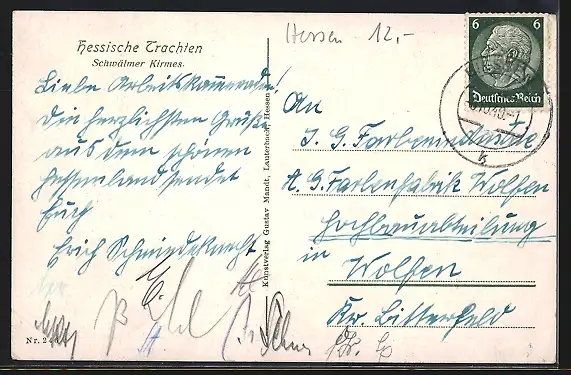 Hessische Trachten
Schwälmer Kirmes.
Hessen 12,-
6 6
Deutsches Reich
Liebe Arbeitskameraden!
Die herzlichsten Grüße
aus dem schönen
Hessenland sendet
Euch
Erich Schmiedeknecht
Nr. 24
Kunstverlag Gustav Mandt, Lauterbach, Hessen
An
I. G. Farbenindustrie
A. G. Farbenfabrik Wolfen
Hochbauabteilung
in
Wolfen
Kr. Bitterfeld